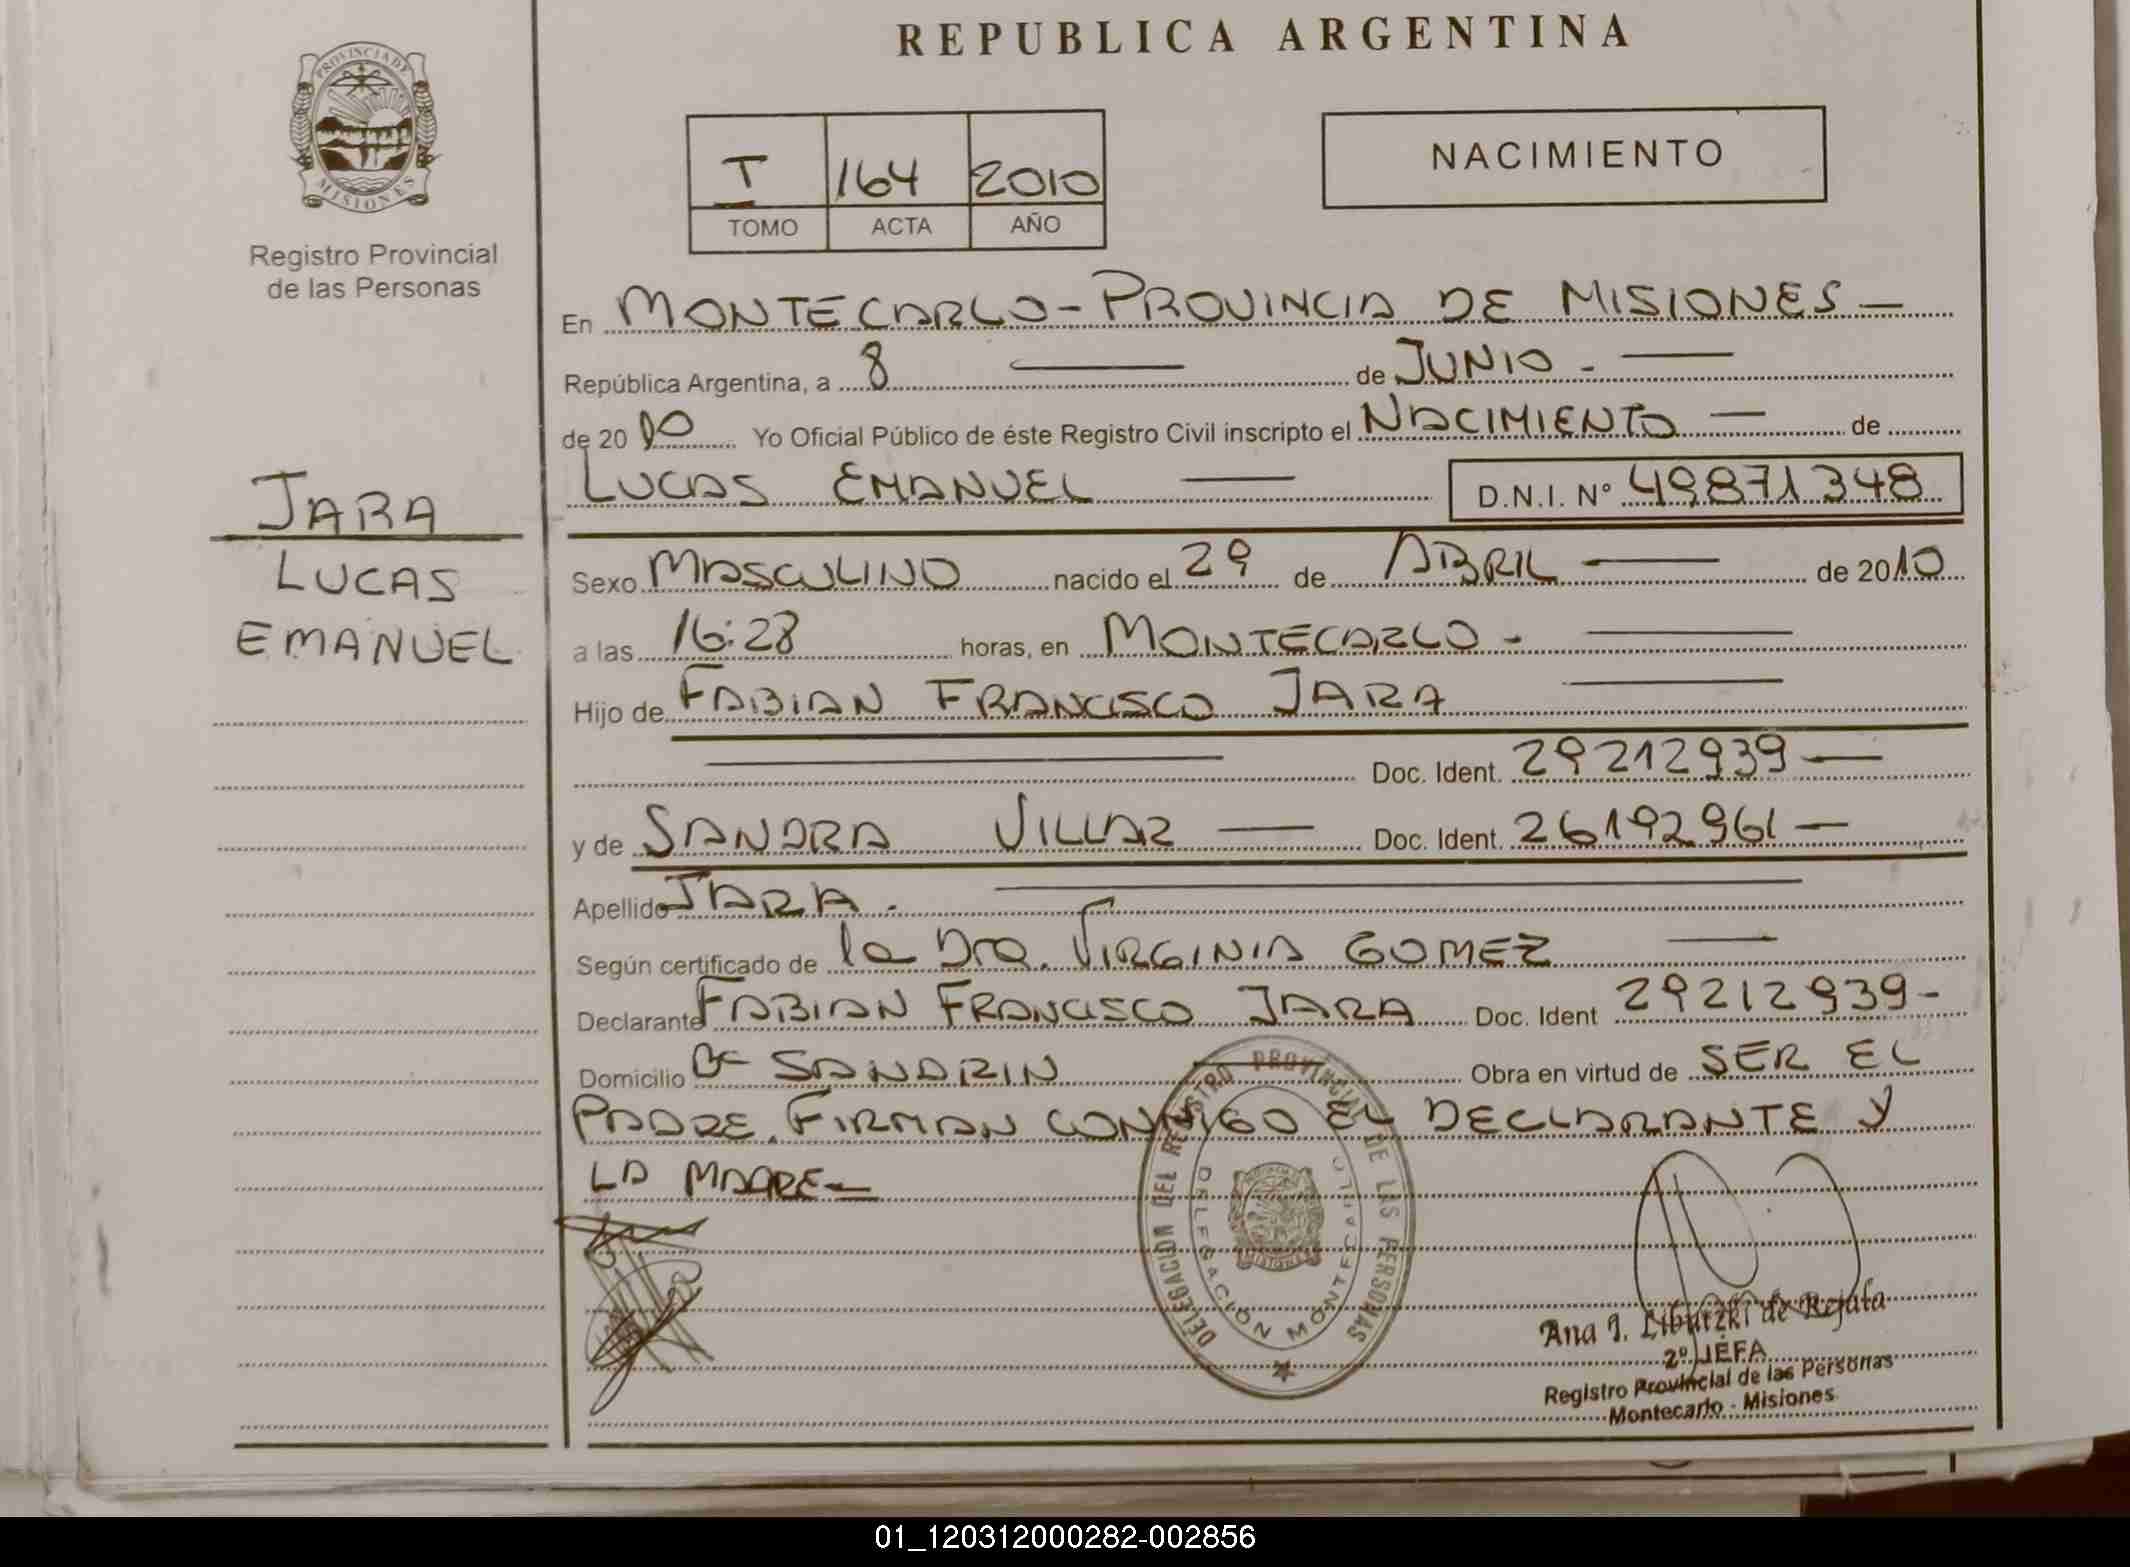 REPUBLICA ARGENTINA
PROVINCIA DE
MISIONES
Registro Provincial
de las Personas
JARA
LUCAS
EMANUEL
T 164 2010
TOMO ACTA AÑO
NACIMIENTO
En MONTECARLO - PROVINCIA DE MISIONES —
República Argentina, a 8 — de JUNIO. —
de 20 10 Yo Oficial Público de éste Registro Civil inscripto el NACIMIENTO — de
LUCAS EMANUEL — D.N.I. N° 49871348
Sexo MASCULINO nacido el 29 de ABRIL — de 2010
a las 16:28 horas, en MONTECARLO - —
Hijo de FABIAN FRANCISCO JARA —
— Doc. Ident. 29212939 —
y de SANDRA VILLAR — Doc. Ident. 26192961 —
Apellido JARA. —
Según certificado de la Dra. VIRGINIA GOMEZ —
Declarante FABIAN FRANCISCO JARA Doc. Ident 29212939 -
Domicilio Bº SANDRIN Obra en virtud de SER EL
PADRE. FIRMAN CONMIGO EL DECLARANTE Y
LA MADRE —
DELEGACION DEL REGISTRO PROVINCIAL DE LAS PERSONAS
DELEGACIÓN MONTECARLO
MISIONES
Ana J. de
2º JEFA
Registro Provincial de las Personas
Montecarlo - Misiones
01_120312000282-002856